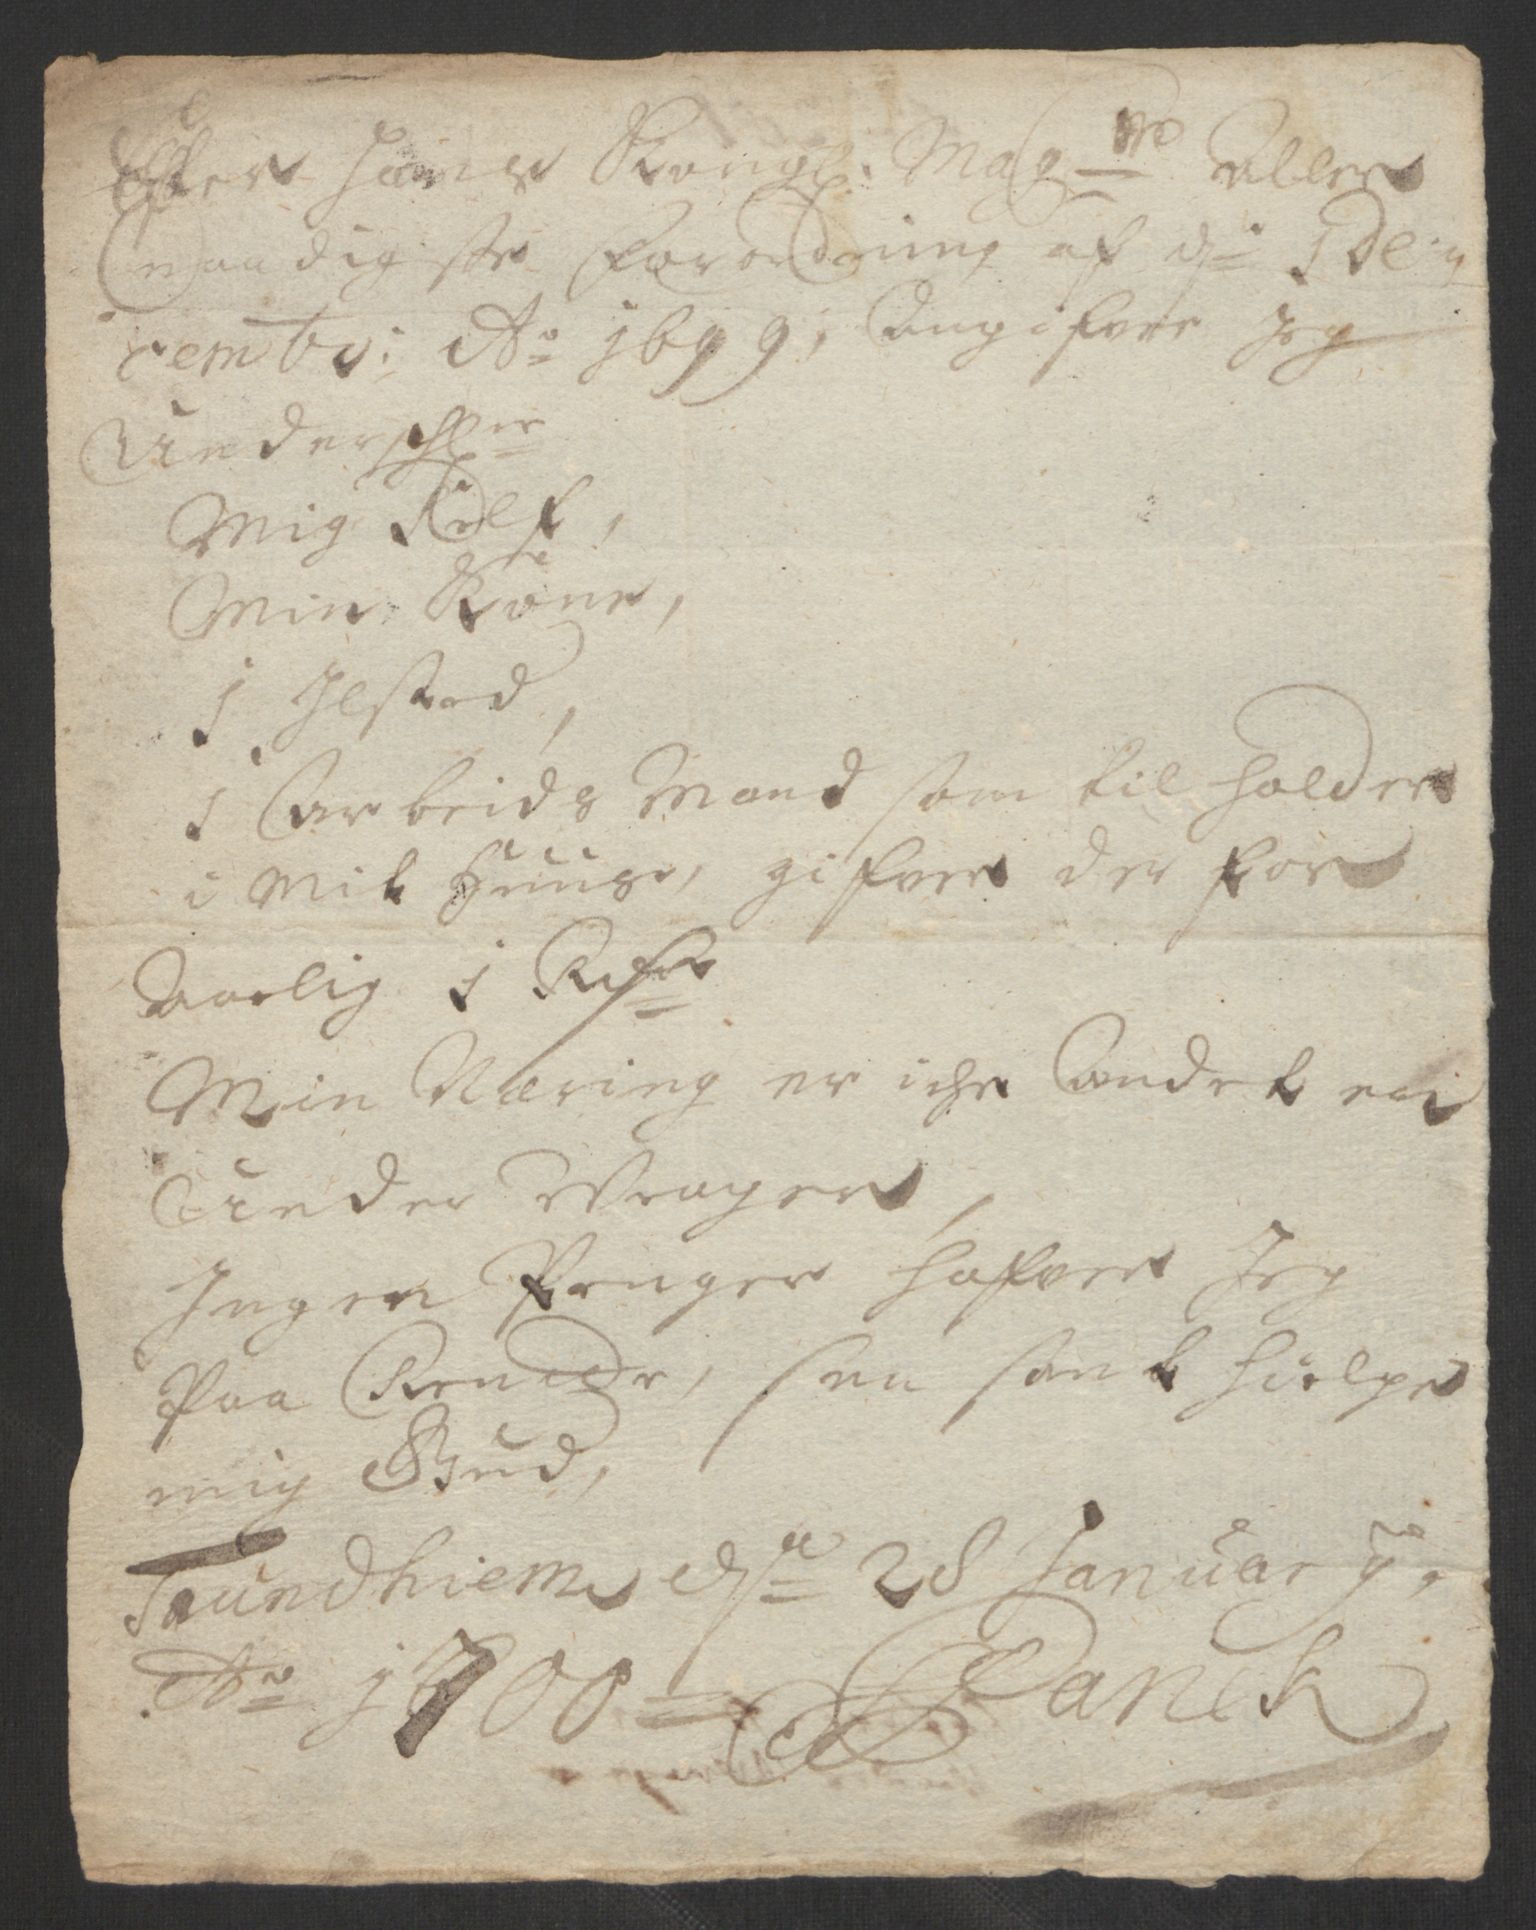 Efter Hans Kongl: May.tts Aller
Naadigste Forordning af d: 1 De:
cembr: Ao 1699, Angifver Jeg
Underschr:
Mig Self,
Min Kone,
1 Ilsted,
1 Arbeids Mand som til holder
i Mit Huus, gifver der for
Aarlig 1 Rdr
Min Næring er iche Andet en
Under Wrager,
Ingen Penger hafver Jeg
Paa Rendte, saa sant hielpe
mig Gud,
Trundhiem d. 28 Januarij.
Ao 1700 = Panck